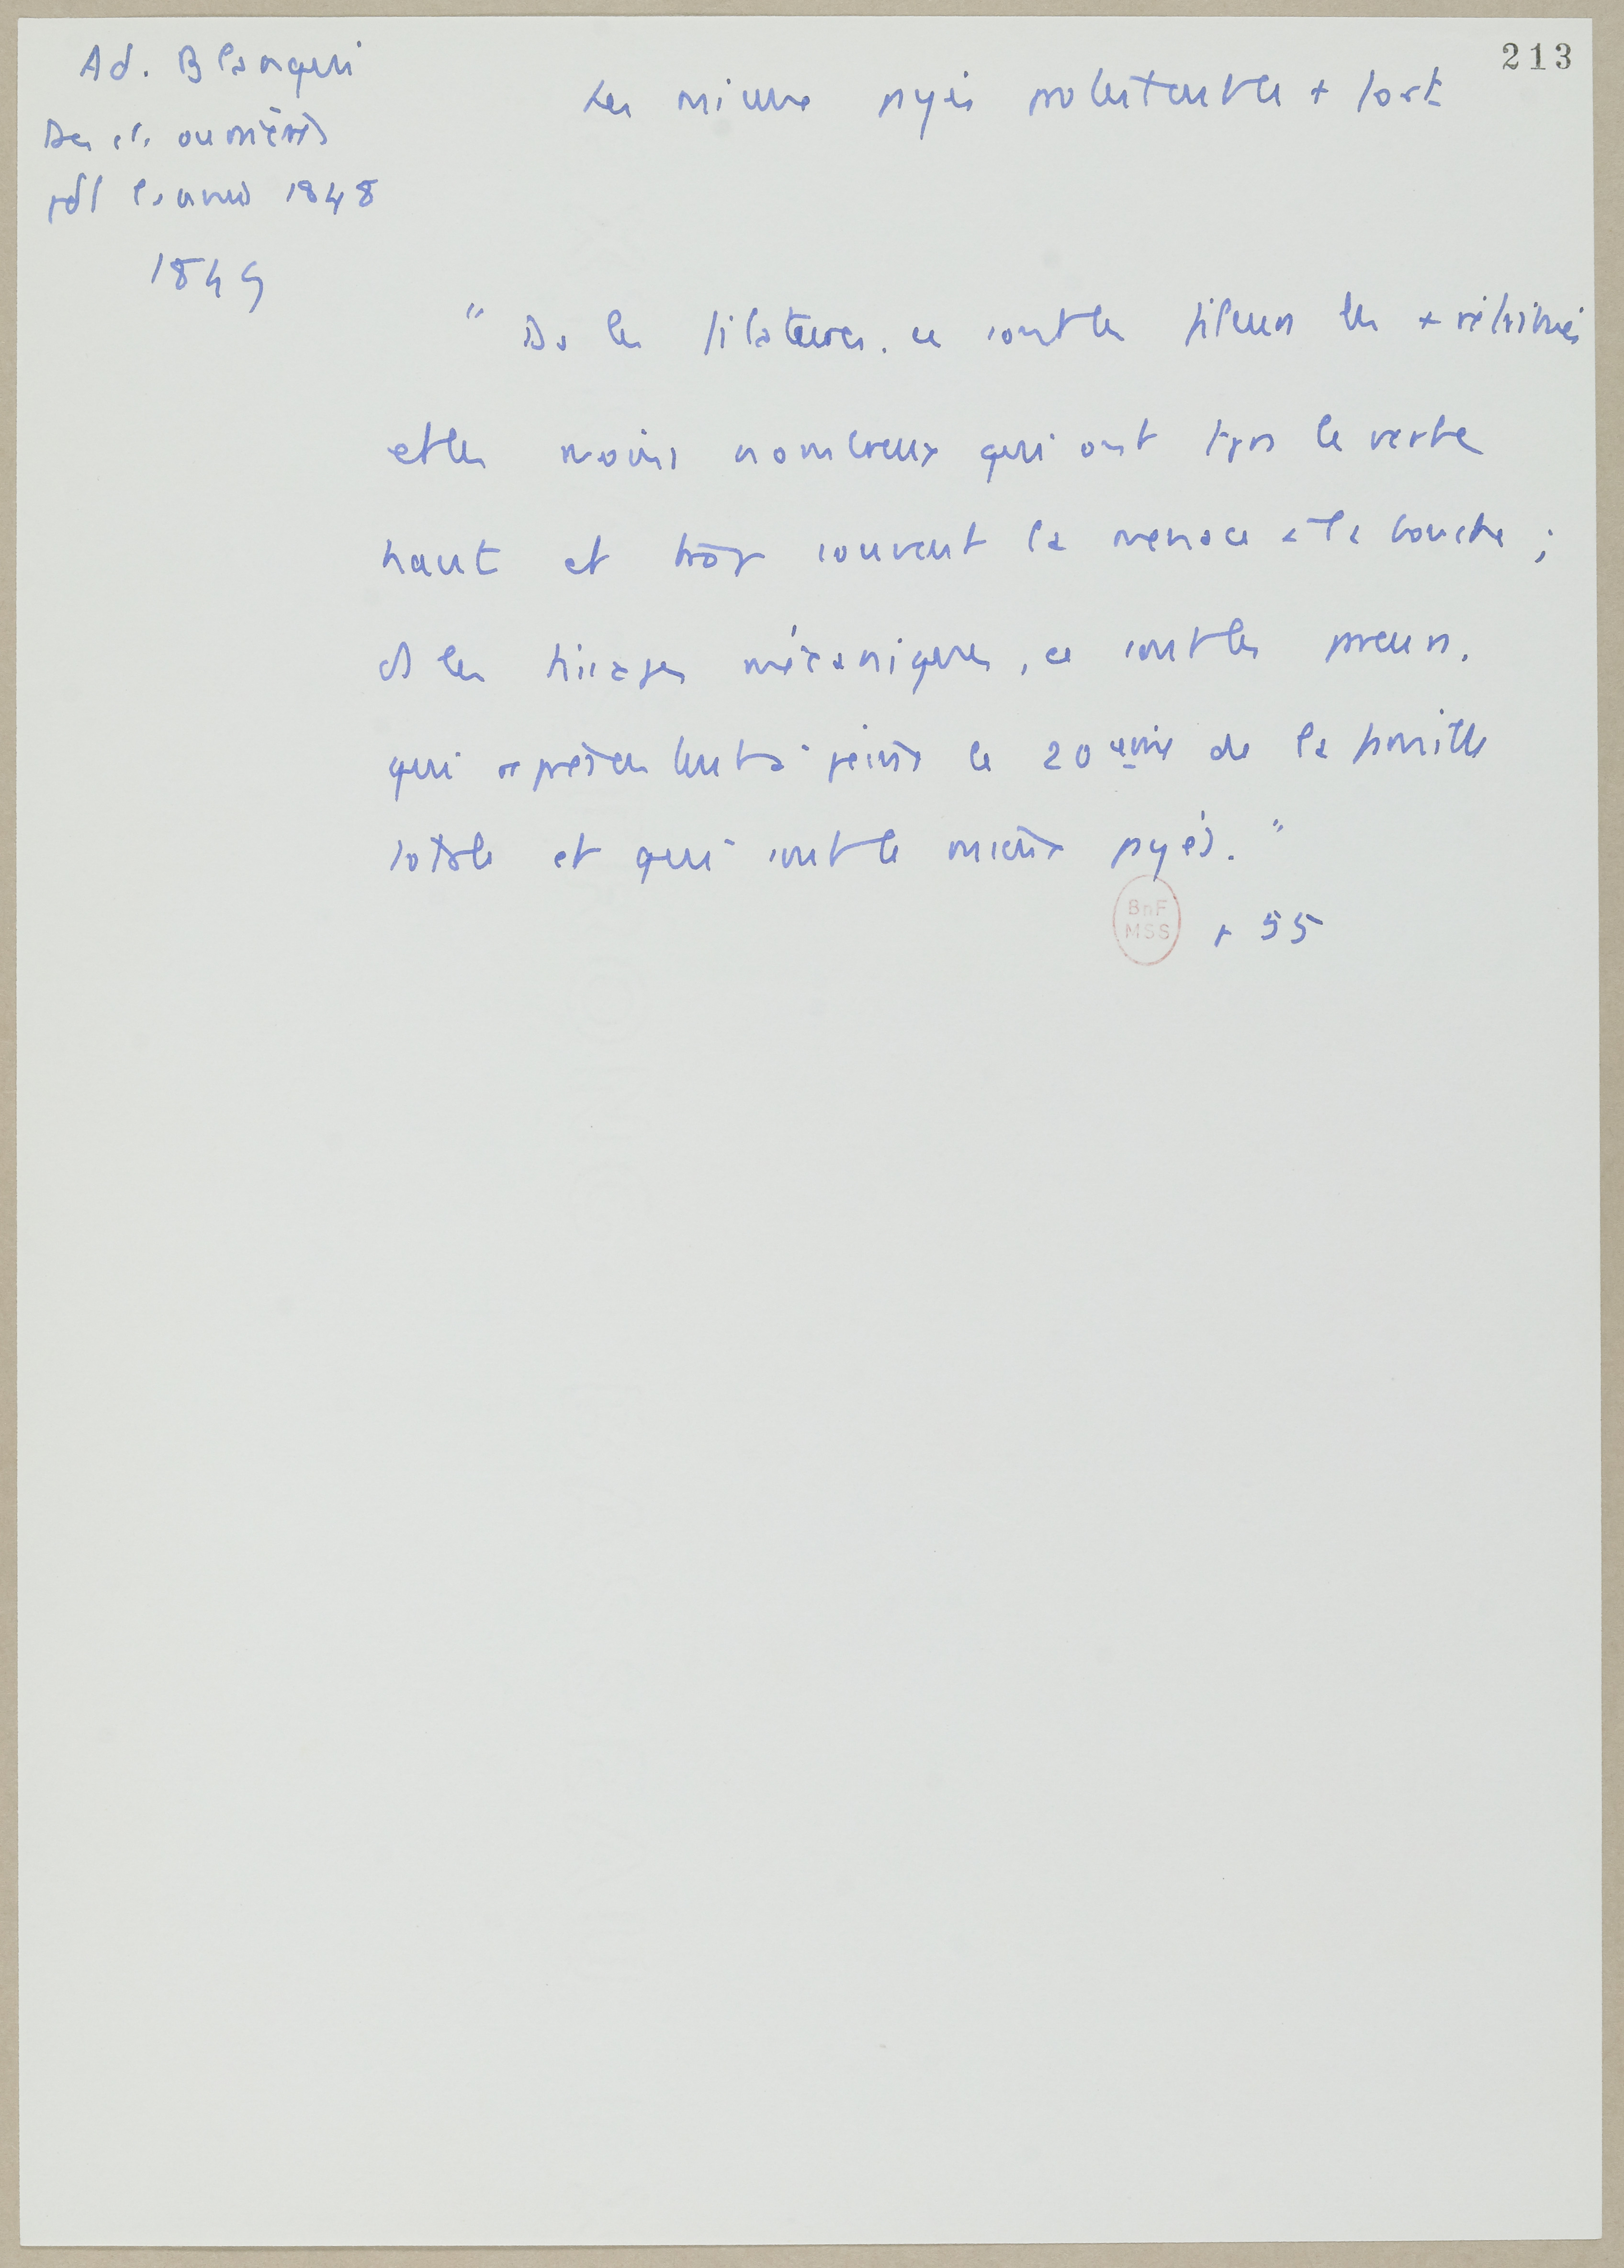 213
Ad. Blanqui
Des cl. ouvrières
pdt l'année 1848
1849
Les mieux payés protestent le + fort
" Ds les filatures, ce sont les fileurs les + rétribués
et les moins nombreux qui ont tjrs le verbe
haut et trop souvent la menace à la bouche ;
ds les tissages mécaniques, ce sont les pareurs,
qui représentent à peine le 20ème de la famille
totale et qui sont le mieux payés. "
BnF
MSS
p 55